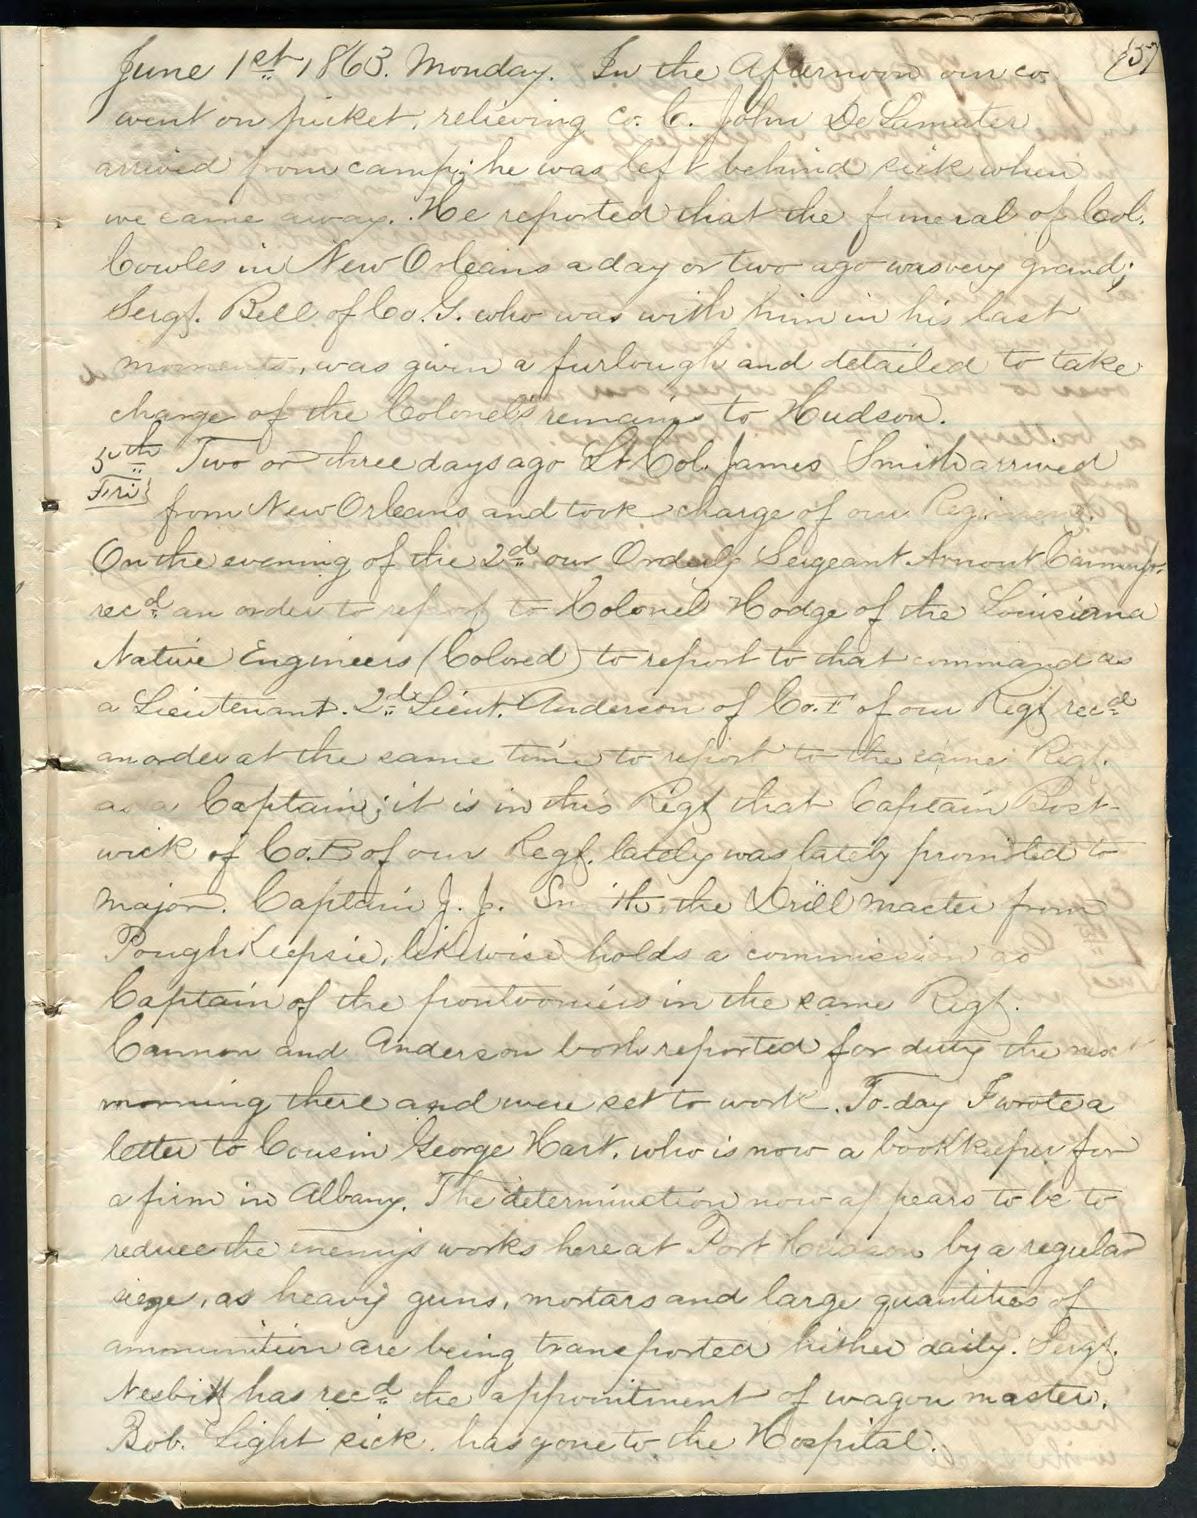 June 1st, 1863. Monday. In the Afternoon our co
went on picket, relieving Co. C. John DeLamater
arrived from camp; he was left behind sick when
we came away. He reported that the funeral of Col.
Cowles in New Orleans a day or two ago was very grand;
Sergt. Bell of Co. G. who was with him in his last
moments, was given a furlough and detailed to take
charge of the Colonel's remains to Hudson.
5th Two or three days ago Lt Col. James Smith arrived
Fri from New Orleans and took charge of our Regiment.
On the evening of the 2d our Orderly Sergeant
recd an order to report to Colonel Hodge of the Louisiana
Native Engineers (Colored) to report to that command as
a Lieutenant. 2d Lieut. Anderson of Co. F of our Regt recd
an order at the same time to report to the same Regt.
as a Captain; it is in this Regt that Captain Bost-
wick of Co. B of our Regt. lately was lately promoted to
Major. Captain J. J. Smith, the Drill master from
PoughKeepsie, likewise holds a commission as
Captain of the in the same Regt.
Cannon and Anderson both reported for duty the next
morning there and were set to work. To-day I wrote a
letter to Cousin George Hart, who is now a bookkeeper for
a firm in Albany. The determination now appears to be to
reduce the enemy's works here at Port Hudson by a regular
siege, as heavy guns, mortars and large quantities of
ammunition are being transported hither daily. Sergt.
Nesbitt has recd the appointment of wagon master.
Bob. Light sick, has gone to the Hospital.